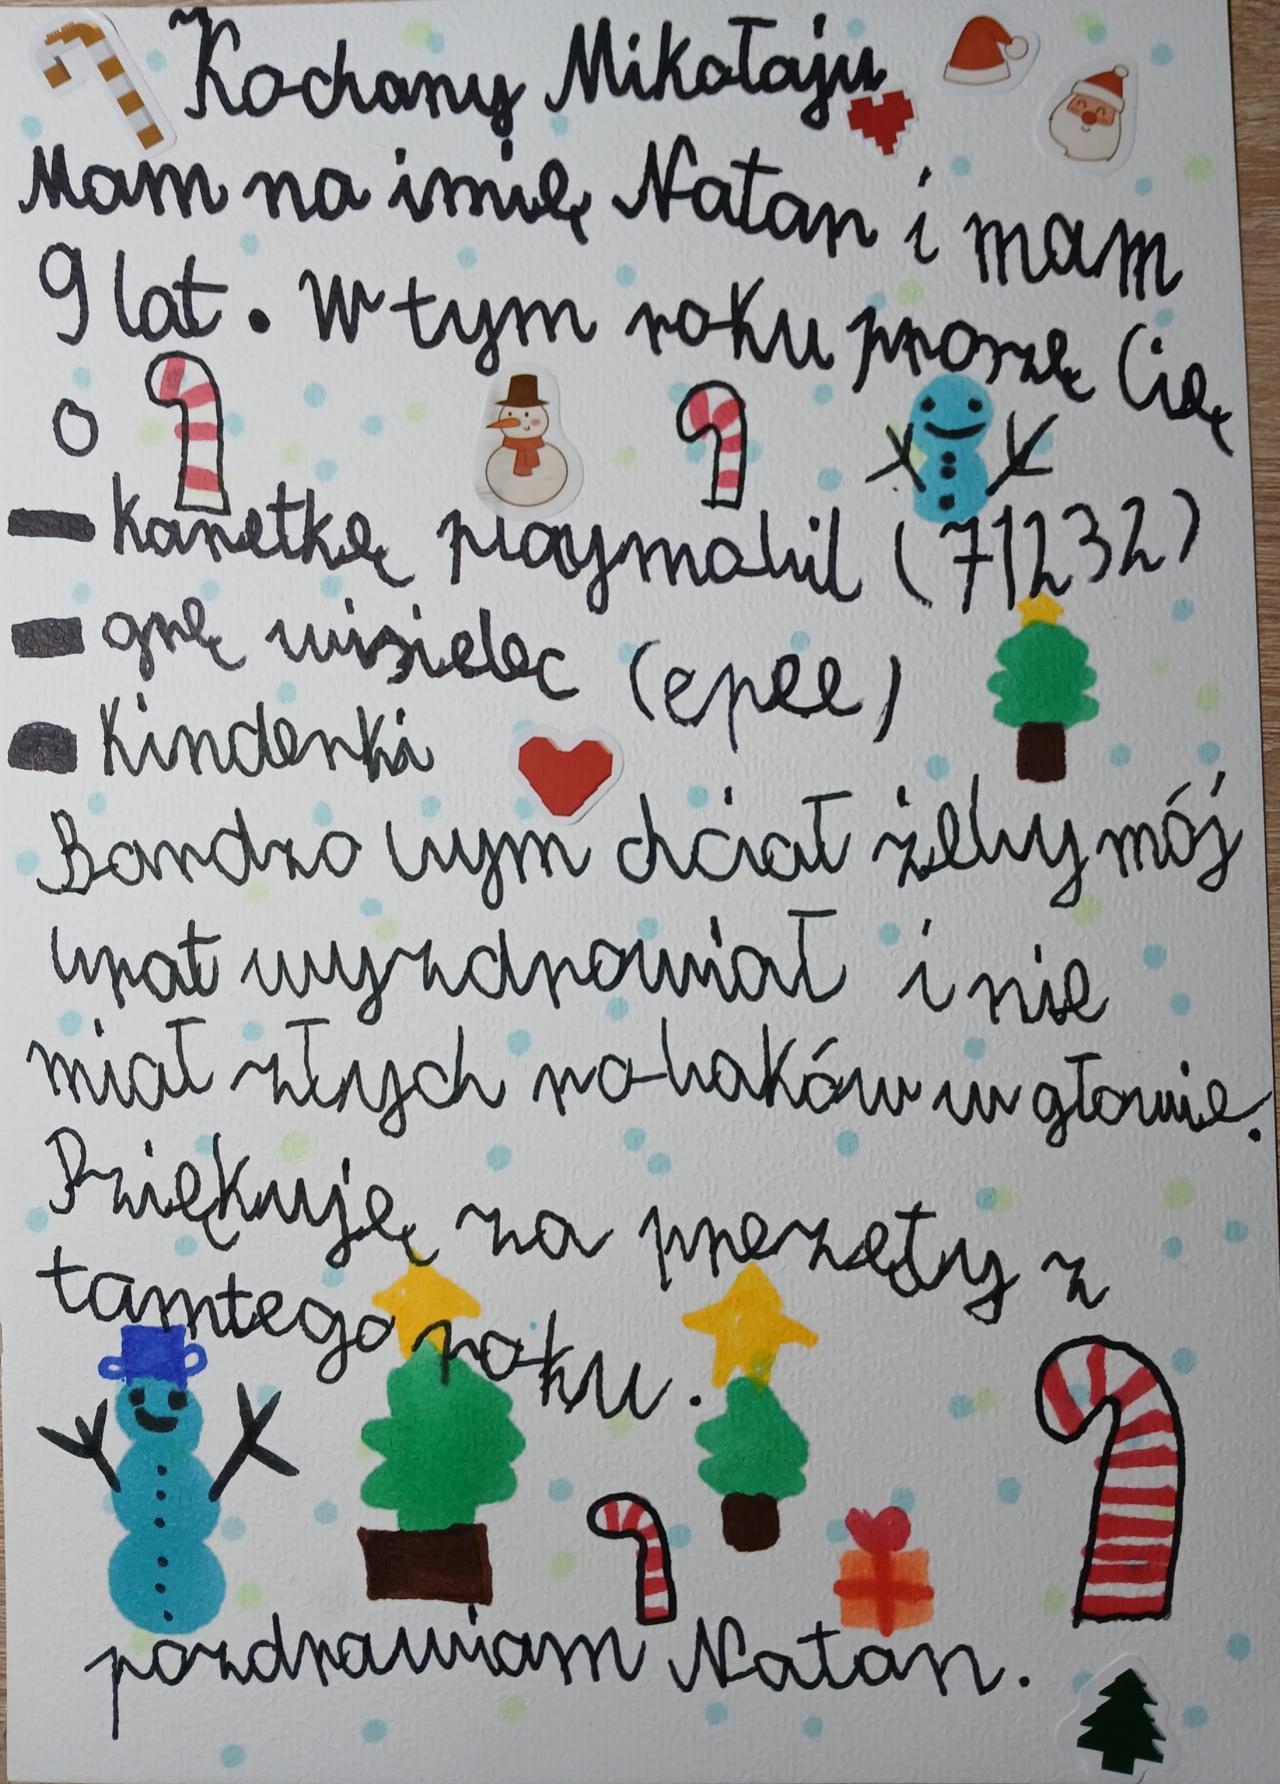 Kochany Mikołaju
Mam na imię Natan i mam
9 lat. W tym roku proszę Cię
o
- karetkę playmobil (71232)
- grę wisielec (epee)
- Kinderki
Bardzo bym chciał żeby mój
brat wyzdrowiał i nie
miał złych robaków w głowie.
Dziękuję za prezęty z
tamtego roku.
pozdrawiam Natan.